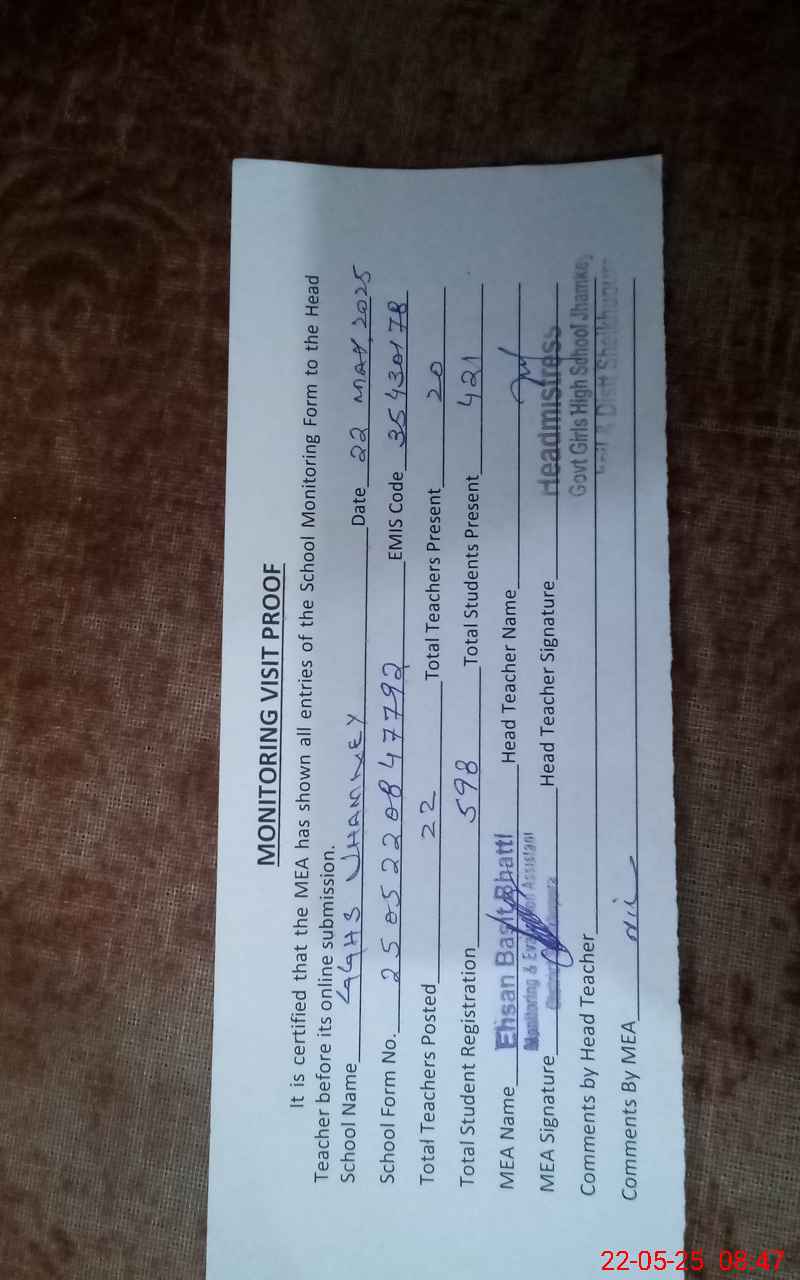 MONITORING VISIT PROOF
It is certified that the MEA has shown all entries of the School Monitoring Form to the Head
Teacher before its online submission.
School Name GGHS JHAMKEY Date 22 MAY, 2025
School Form No. 250522084 7792 EMIS Code 35430178
Total Teachers Posted 22 Total Teachers Present 20
Total Student Registration 598 Total Students Present 421
MEA Name Ehsan Basit Bhatti Head Teacher Name
Monitoring & Evaluation Assistant
MEA Signature Head Teacher Signature Headmistress
Govt Girls High School Jhamkey
Comments by Head Teacher
& Distt Sheikhupura
Comments By MEA Nil
22-05-25 08:47